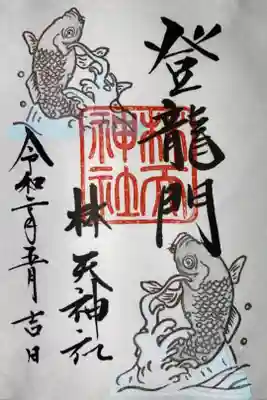 登龍門
林天
神社
林天神社
令和二年五月吉日